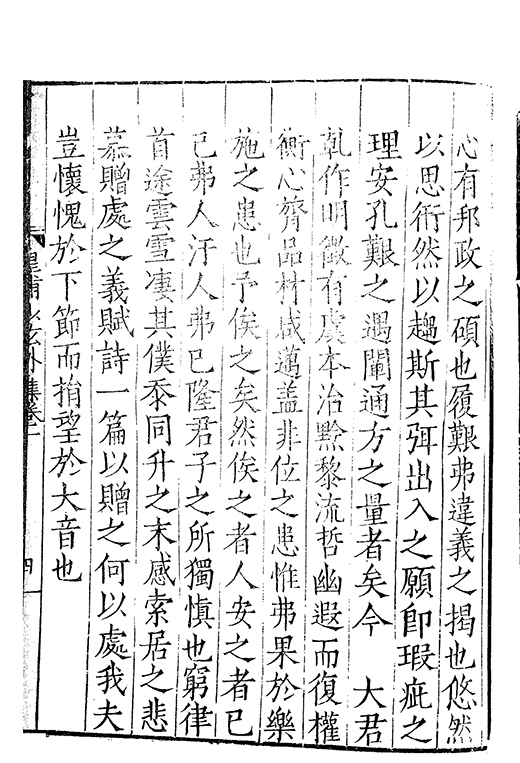 心有邦政之碩也履艱弗違義之揭也悠然
以思術然以趨斯其弭出入之願卽瑕疵之
理安孔艱之遇闡通方之量者矣今　大君
執作明徵有虞本治黔黎流哲幽遐而復權
衡心膂品材咸邁盖非位之患惟弗果於樂
施之患也予俟之矣然俟之者人安之者已
已弗人汙人弗已隆君子之所獨慎也窮律
首途雲雪凄其僕忝同升之末感索居之悲
慕贈處之義賦詩一篇以贈之何以處我夫
豈懷愧於下節而揹望於大音也
四